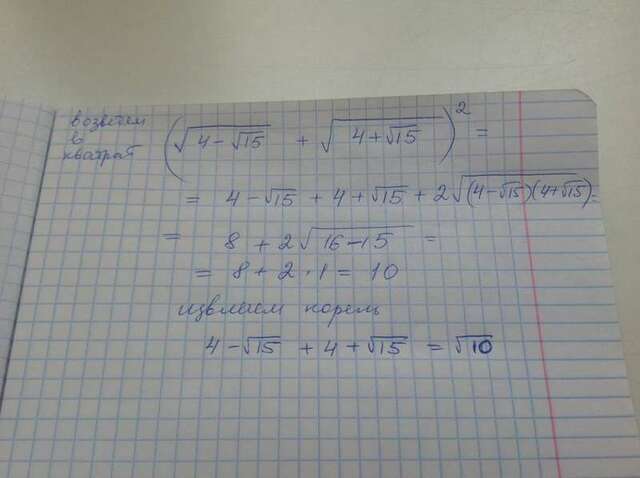 возведем
в
квадрат (√(4-√15) + √(4+√15))² =
= 4-√15 + 4+√15 + 2√((4-√15)(4+√15)) =
= 8 + 2√(16-15) =
= 8 + 2 · 1 = 10
извлечем корень
4-√15 + 4+√15 = √10